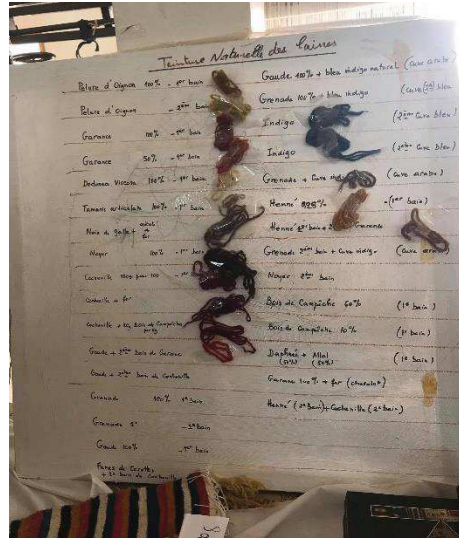 Teinture Naturelle des laines
Pelure d'Oignon 100% - 1er bain
Pelure d'Oignon - 2ème bain
Garance 100% - 1er bain
Garance 50% - 1er bain
Viscosa 100% - 1er bain
Tamaris articulata 100% - 1er bain
Noix de galle + de fer
Noyer 100% - 1er bain
Cochenille - 1er bain
Cochenille + fer
Cochenille + Bois de Campêche
Gaude + 2ème bain de Garance
Gaude + 2ème bain de Cochenille
Grenade 100% 1er bain
Grenade 2° - 2è bain
Gaude 100% - 1er bain
Fanes de Carottes
+ 2è bain de Cochenille
Gaude 100% + bleu indigo naturel (Cuve arabe)
Grenade 100% + bleu indigo (Cuve bleu
Indigo (2ème Cuve bleu)
Indigo (2ème Cuve bleu)
Grenade + Cuve indigo (Cuve arabe)
Henné - (1er bain)
Henné 1er bain + Grenade
Grenade 2ème bain + Cuve indigo (Cuve arabe)
Noyer 2è bain
Bois de Campêche 60% (1er bain)
Bois de Campêche 10% (1er bain)
Daphné + (1er bain)
(50%) (50%)
Garance 100% + fer
Henné (2è bain) + Cochenille (2è bain)